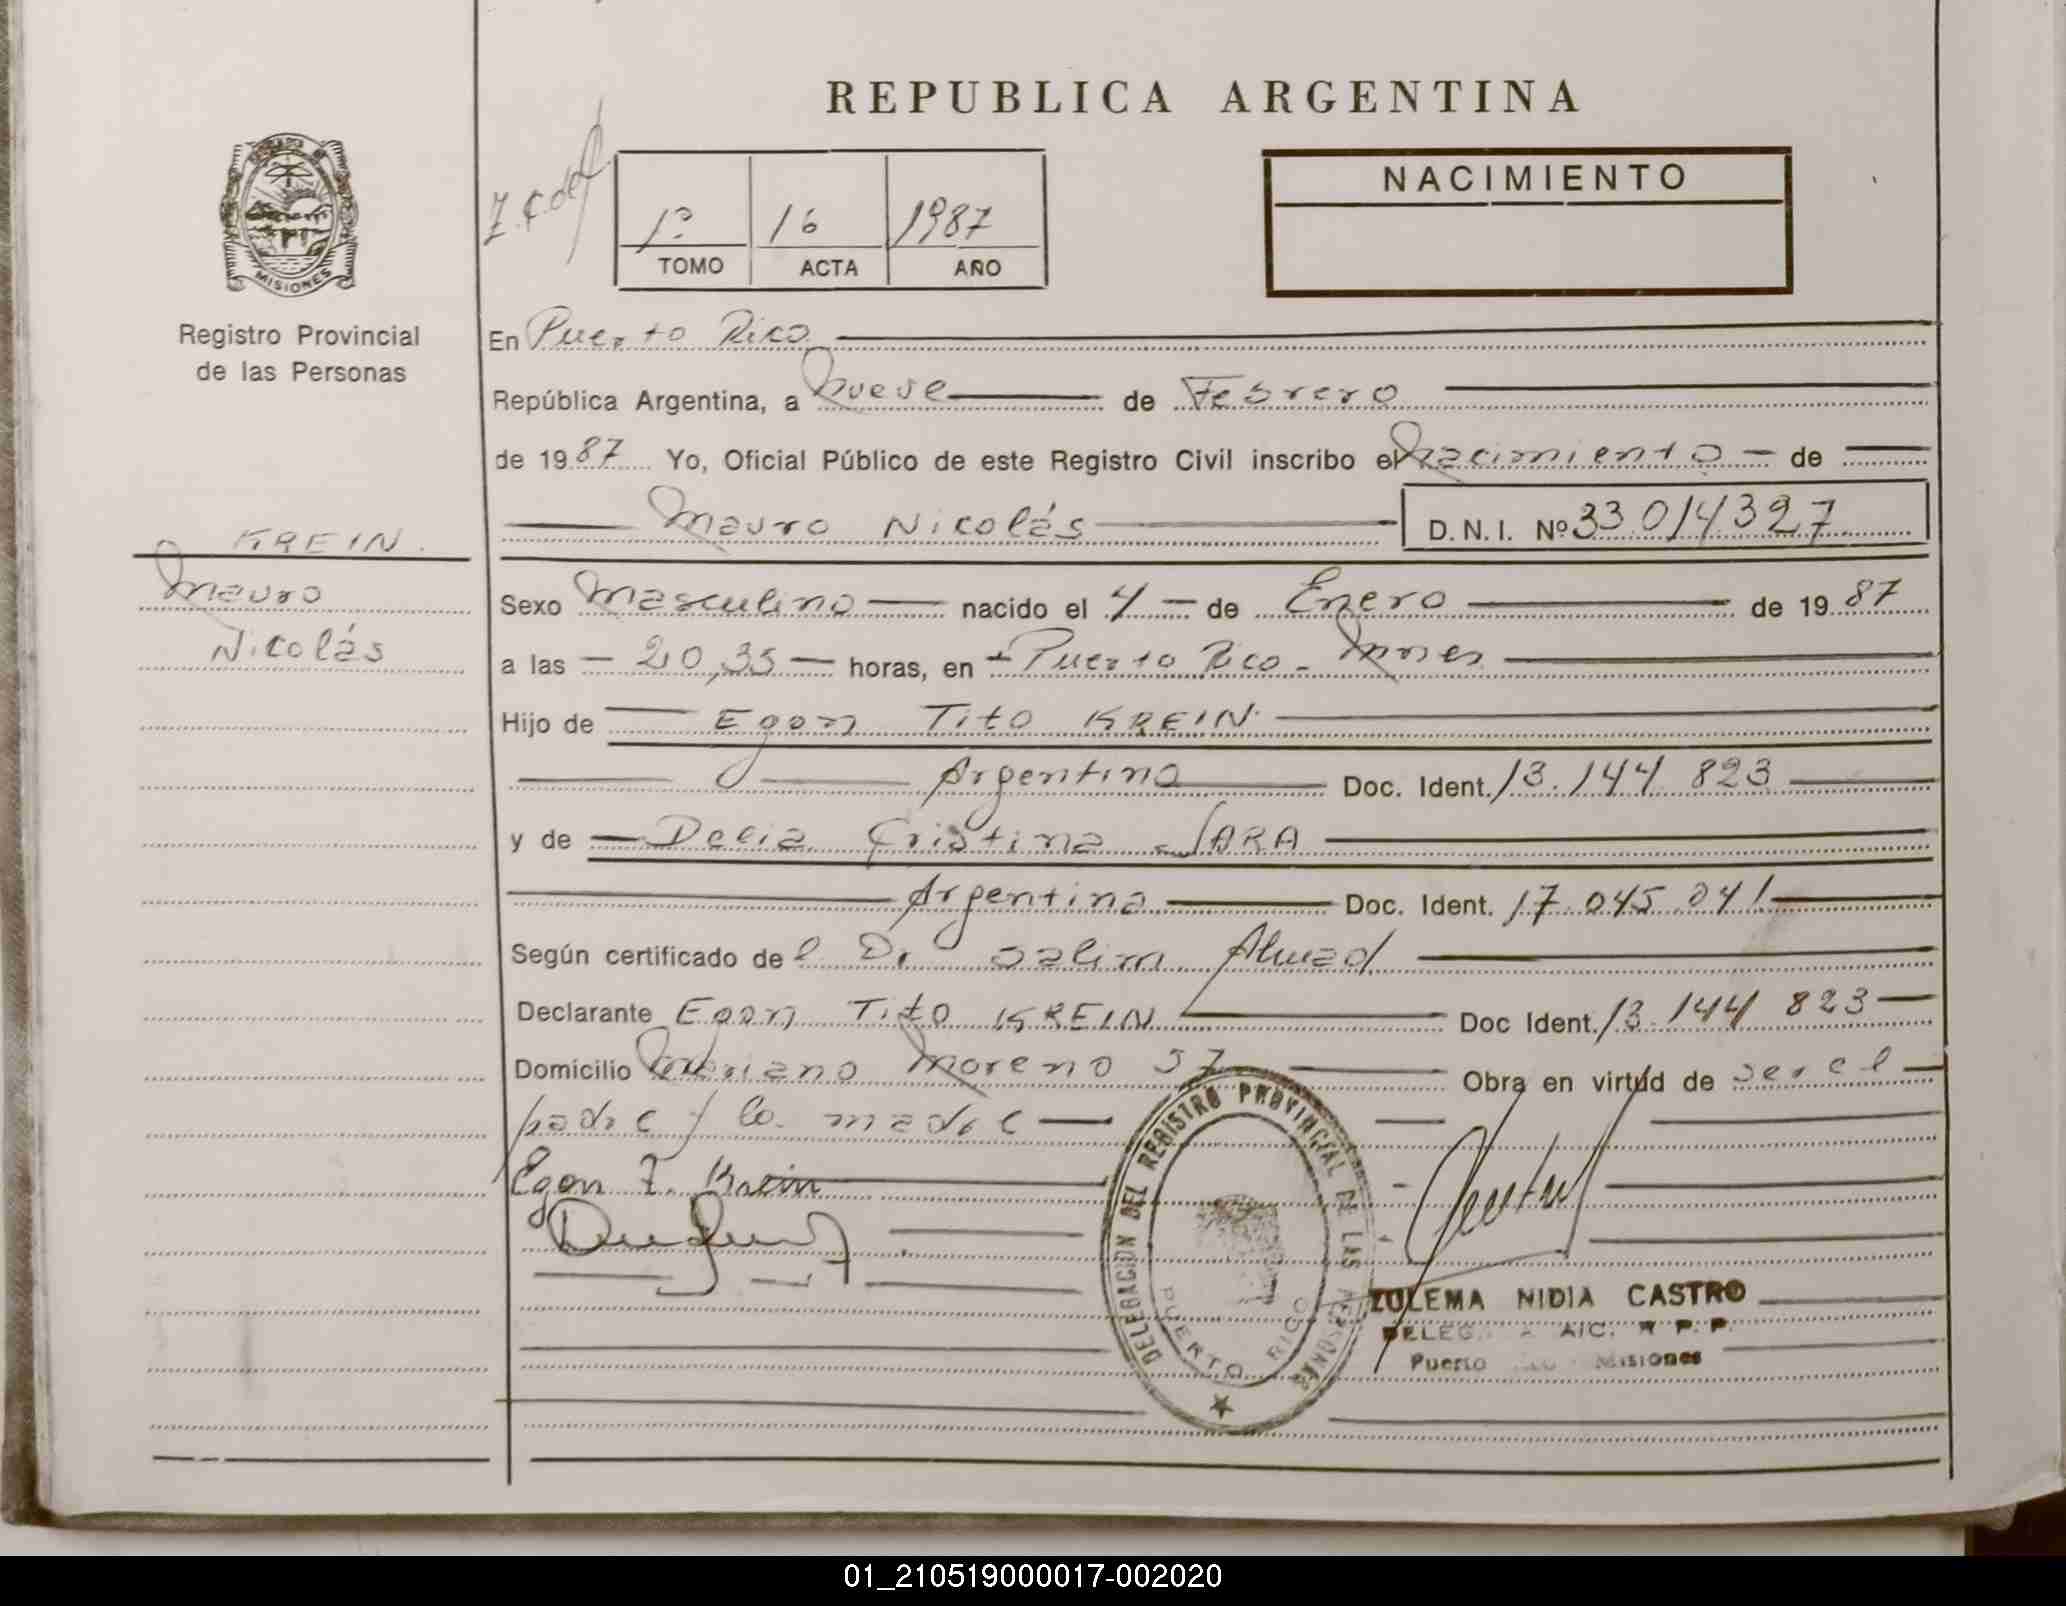 REPUBLICA ARGENTINA
MISIONES
Registro Provincial
de las Personas
1º 16 1987
TOMO ACTA AÑO
NACIMIENTO
En Puerto Rico
República Argentina, a Nueve de Febrero
de 1987 Yo, Oficial Público de este Registro Civil inscribo el Nacimiento de
Mauro Nicolás D.N.I. Nº 33.014.327
KREIN
Mauro
Nicolás
Sexo Masculino nacido el 4 de Enero de 1987
a las 20,35 horas, en Puerto Rico - Mnes
Hijo de Egon Tito KREIN
Argentino Doc. Ident. 13.144.823
y de Delia Cristina JARA
Argentina Doc. Ident. 17.045.041
Según certificado del Dr Salim
Declarante Egon Tito KREIN Doc Ident. 13.144.823
Domicilio Mariano Moreno 57 Obra en virtud de ser el
padre y la madre
Egon T. Krein
DELEGACION DEL REGISTRO PROVINCIAL DE LAS PERSONAS
PUERTO RICO
ZULEMA NIDIA CASTRO
R.P.P.
Puerto Misiones
01_210519000017-002020